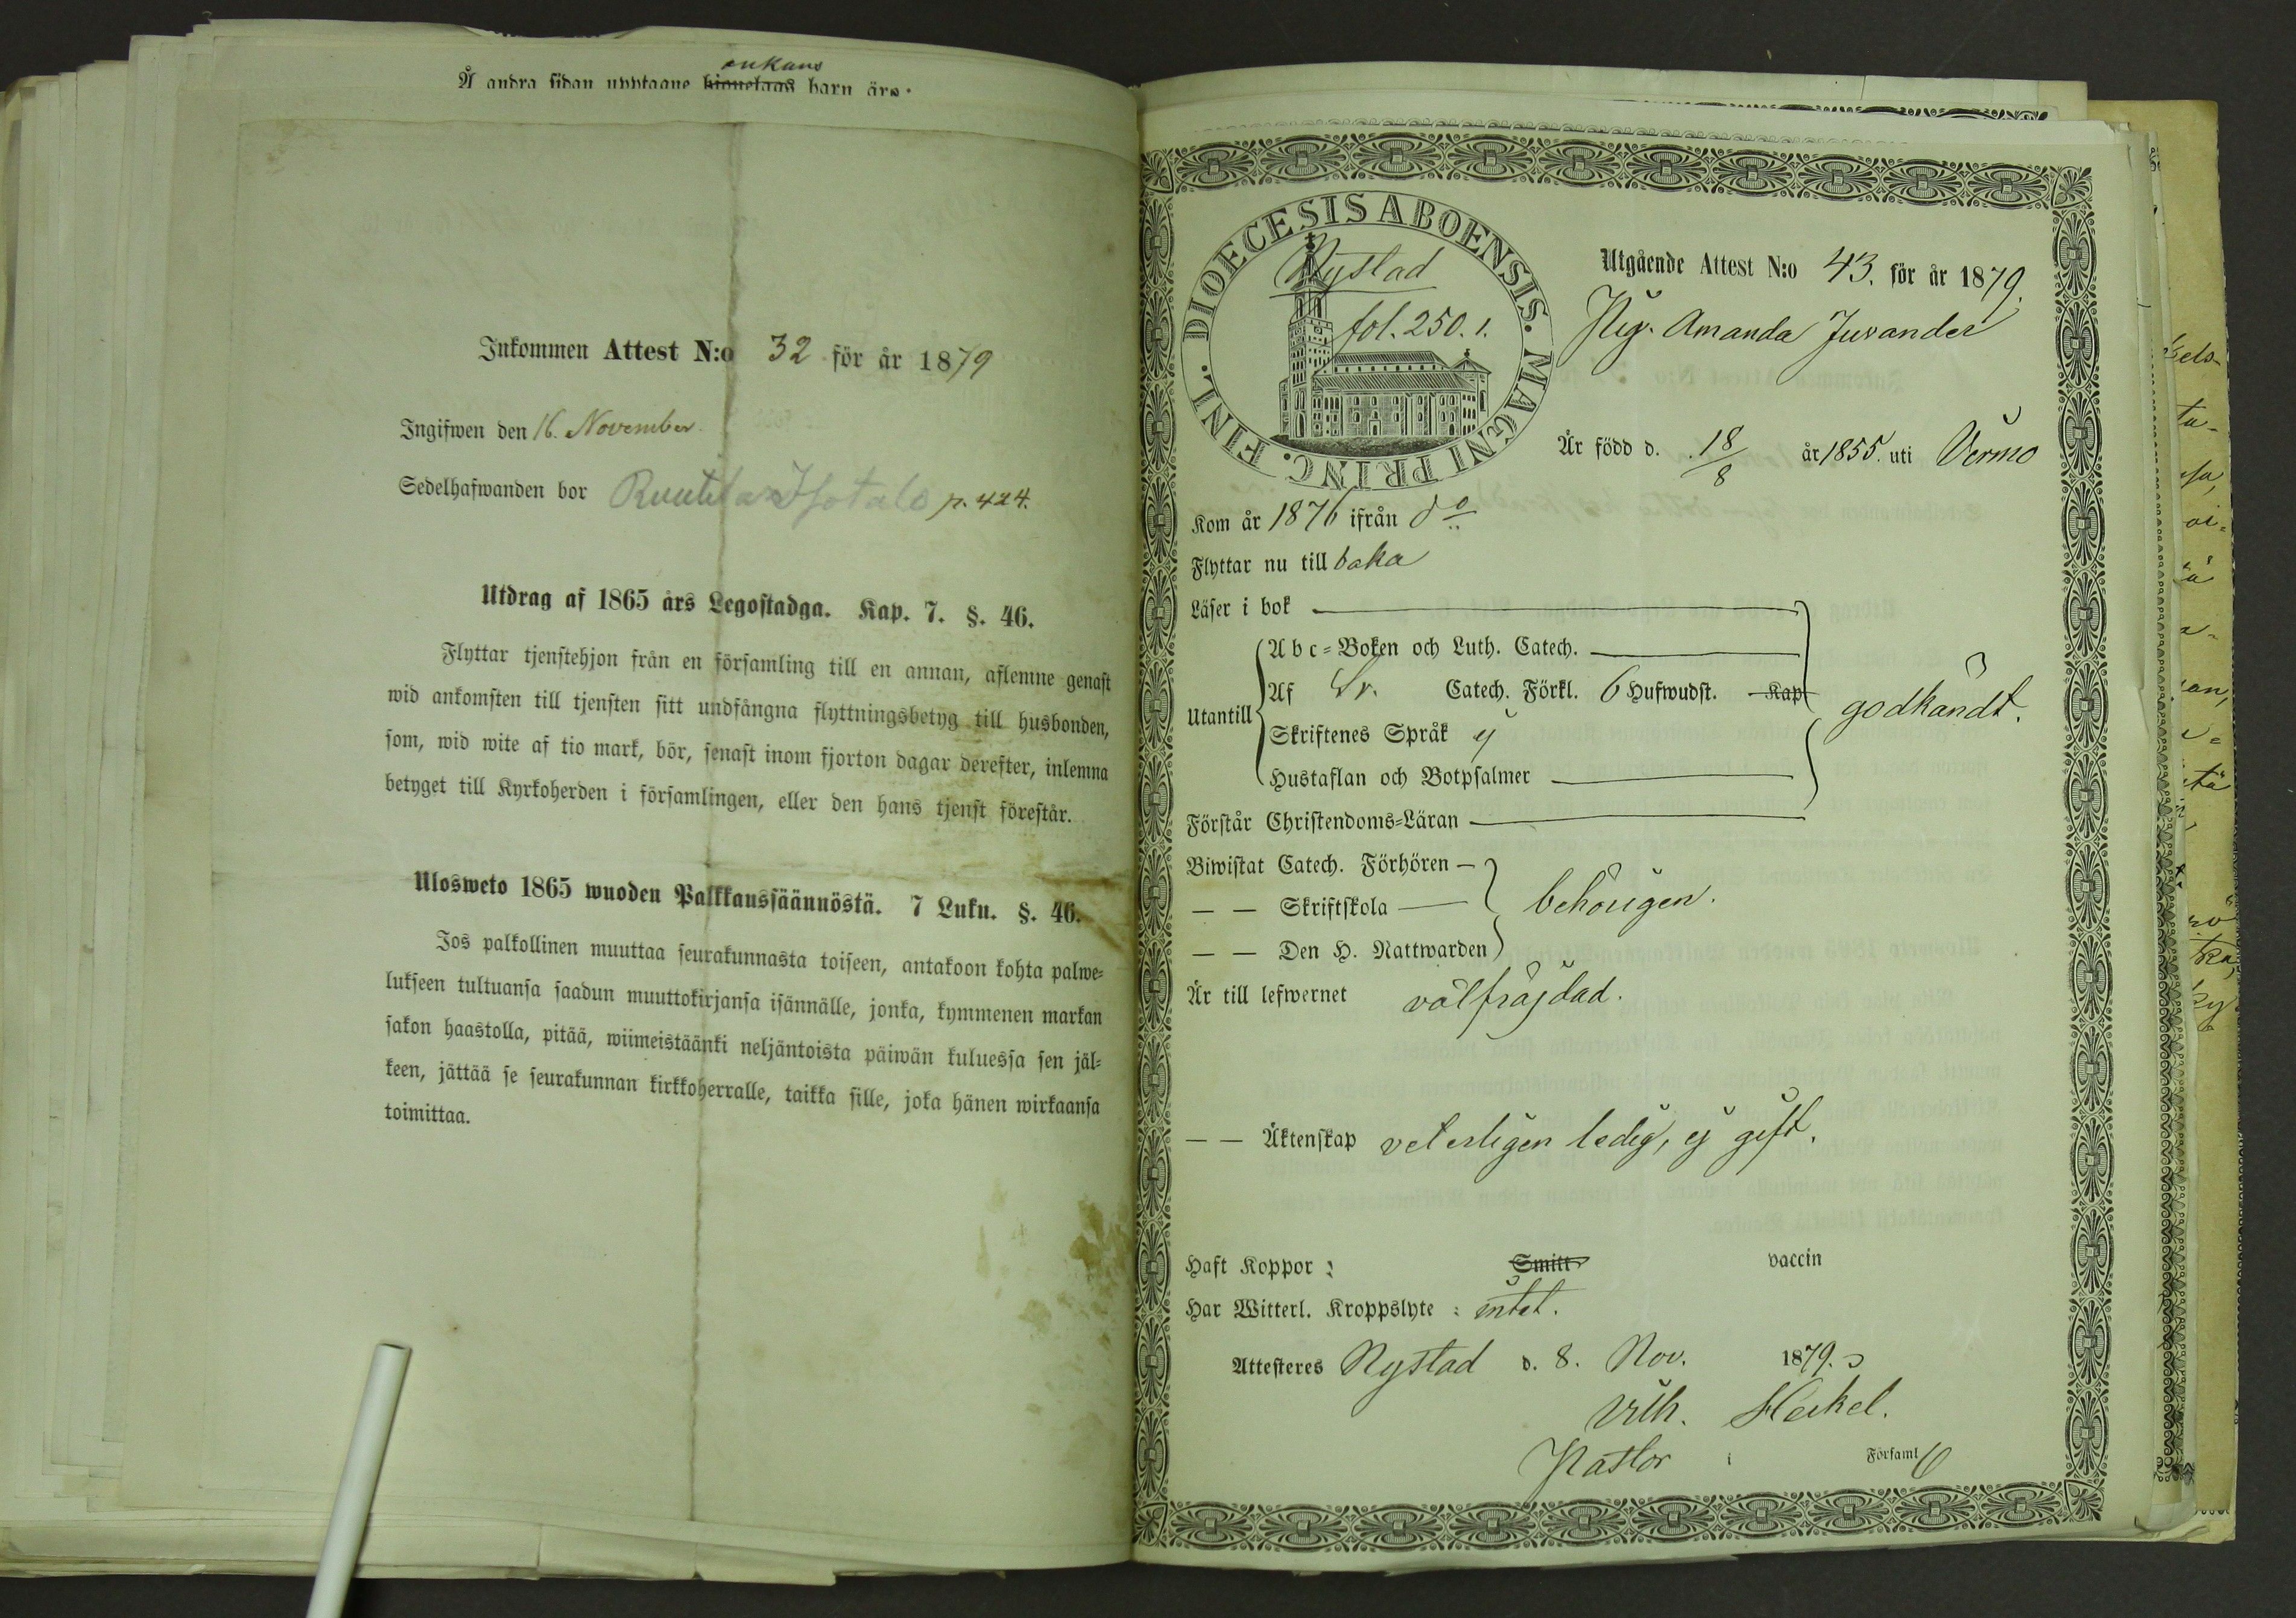 enkans
Å andra sidan upptagne hionelags barn äro:
Inkommen Attest N:o 32 för år 1879
Ingifwen den 16. November.
Sedelhafwanden bor Ruutila Isotalo p. 424.
Utdrag af 1865 års Legostadga. Kap. 7. §. 46.
Flyttar tjenstehjon från en församling till en annan, aflemne genast
wid ankomsten till tjensten sitt undfångna flyttningsbetyg till husbonden,
som, wid wite af tio mark, bör, senast inom fjorton dagar derefter, inlemna
betyget till Kyrkoherden i församlingen, eller den hans tjenst förestår.
Ulosweto 1865 wuoden Palkkaussäännöstä. 7 Luku. §. 46.
Jos palkollinen muuttaa seurakunnasta toiseen, antakoon kohta palwe=
lukseen tultuansa saadun muuttokirjansa isännälle, jonka, kymmenen markan
sakon haastolla, pitää, wiimeistäänki neljäntoista päiwän kuluessa sen jäl=
keen, jättää se seurakunnan kirkkoherralle, taikka sille, joka hänen wirkaansa
toimittaa.
DIOECESIS ABOENSIS. MAGNI PRINC. FINL.
Nystad
fol. 250. 1.
Utgående Attest N:o 43. för år 1879.
Pig. Amanda Juvander
Är född d. 18/8 år 1855. uti Vermo
Kom år 1876 ifrån do
Flyttar nu till baka
Läser i bok
Utantill
Abc=Boken och Luth. Catech.
Af Sv. Catech. Förkl. 6 Hufwudst. Kap
godkändt.
Skriftenes Språk ej
Hustaflan och Botpsalmer
Förstår Christendoms=Läran
Biwistat Catech. Förhören —
— — Skriftskola — behörigen.
— — Den H. Nattwarden
Är till lefwernet välfräjdad.
— — Äktenskap veterligen ledig, ej gift.
Haft Koppor : Smitt vaccin
Har Witterl. Kroppslyte : intet.
Attesteres Nystad d. 8. Nov. 1879.
Vilh. Heikel.
Pastor i Församl